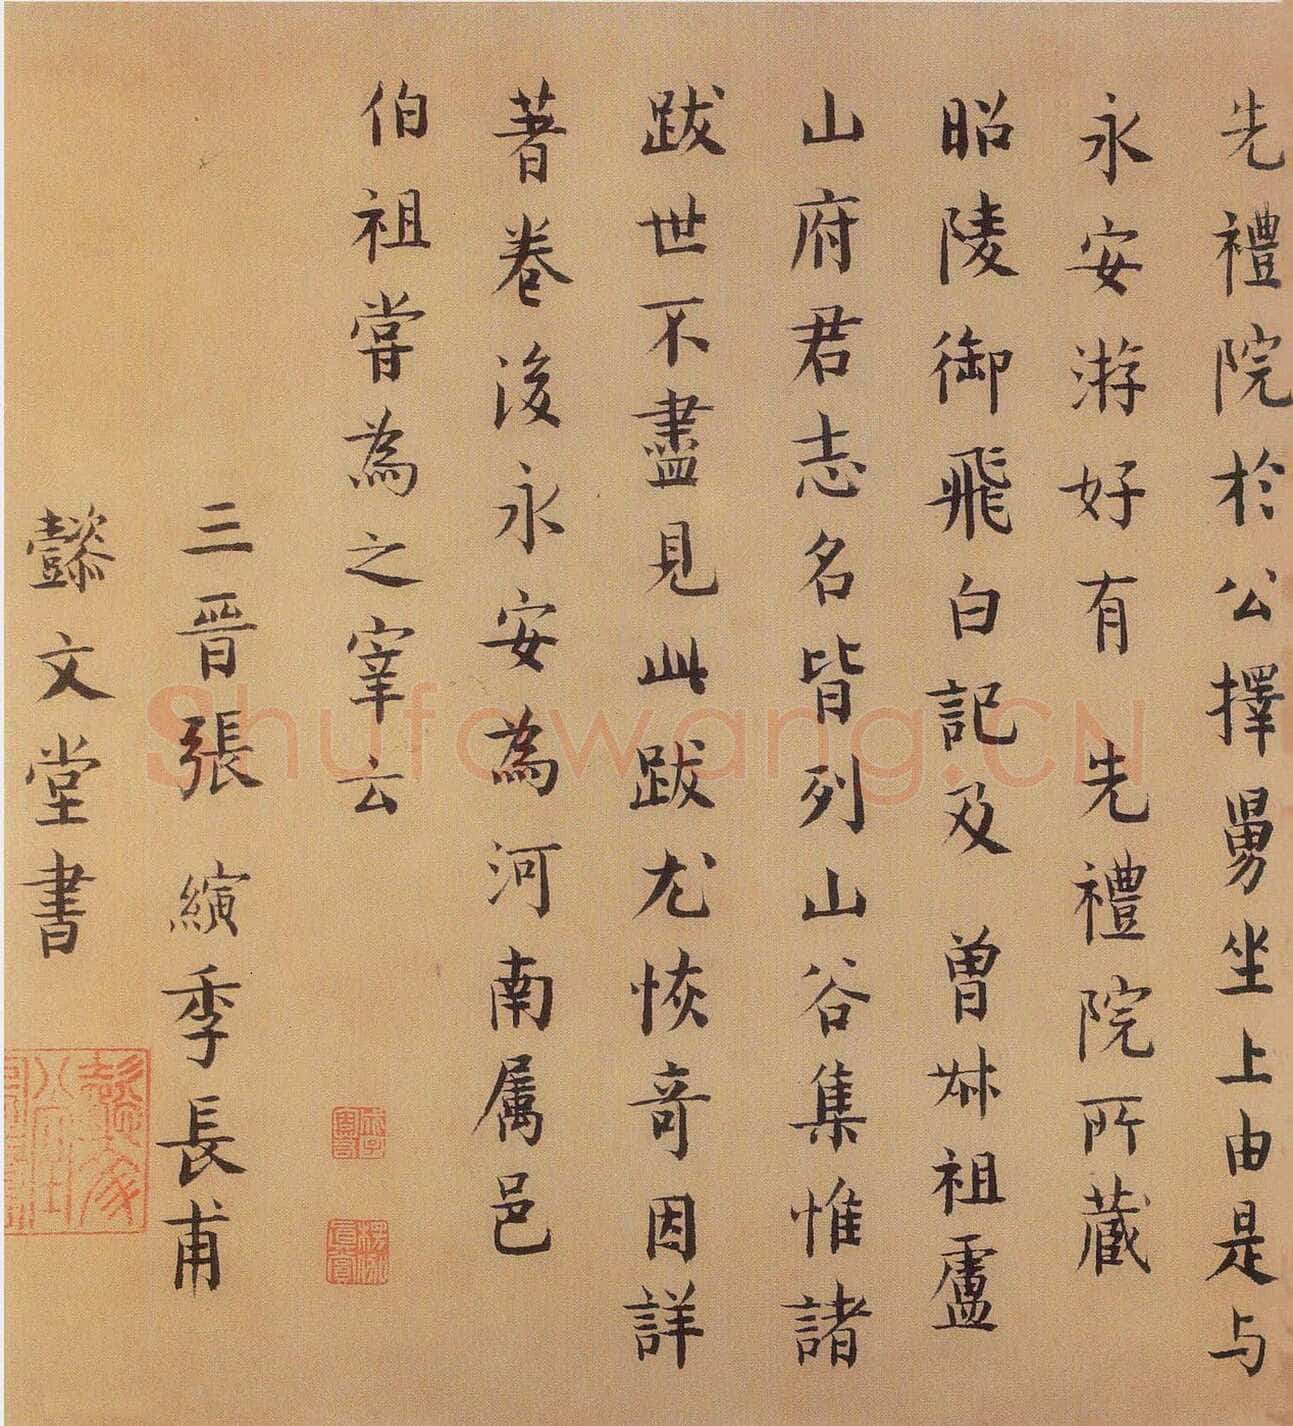 先禮院於公擇舅坐上由是与
永安游好有 先禮院所藏
昭陵御飛白記及 曾叔祖盧
山府君志名皆列山谷集惟諸
跋世不盡見此跋尤恢奇因詳
著卷後永安為河南属邑
伯祖嘗為之宰云
三晋張縯季長甫
懿文堂書
Shufawang.CN